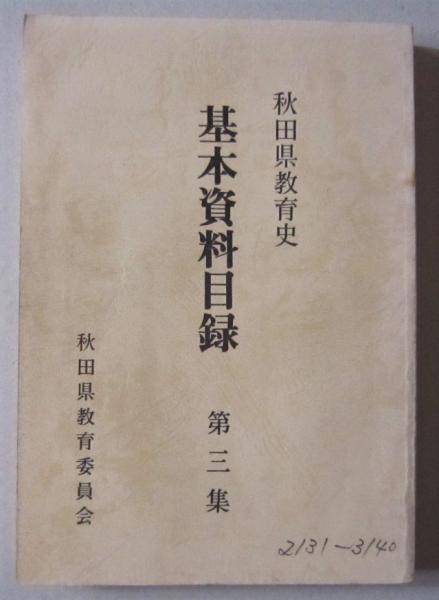 秋田県教育史
基本資料目録 第三集
秋田県教育委員会
2131-3140